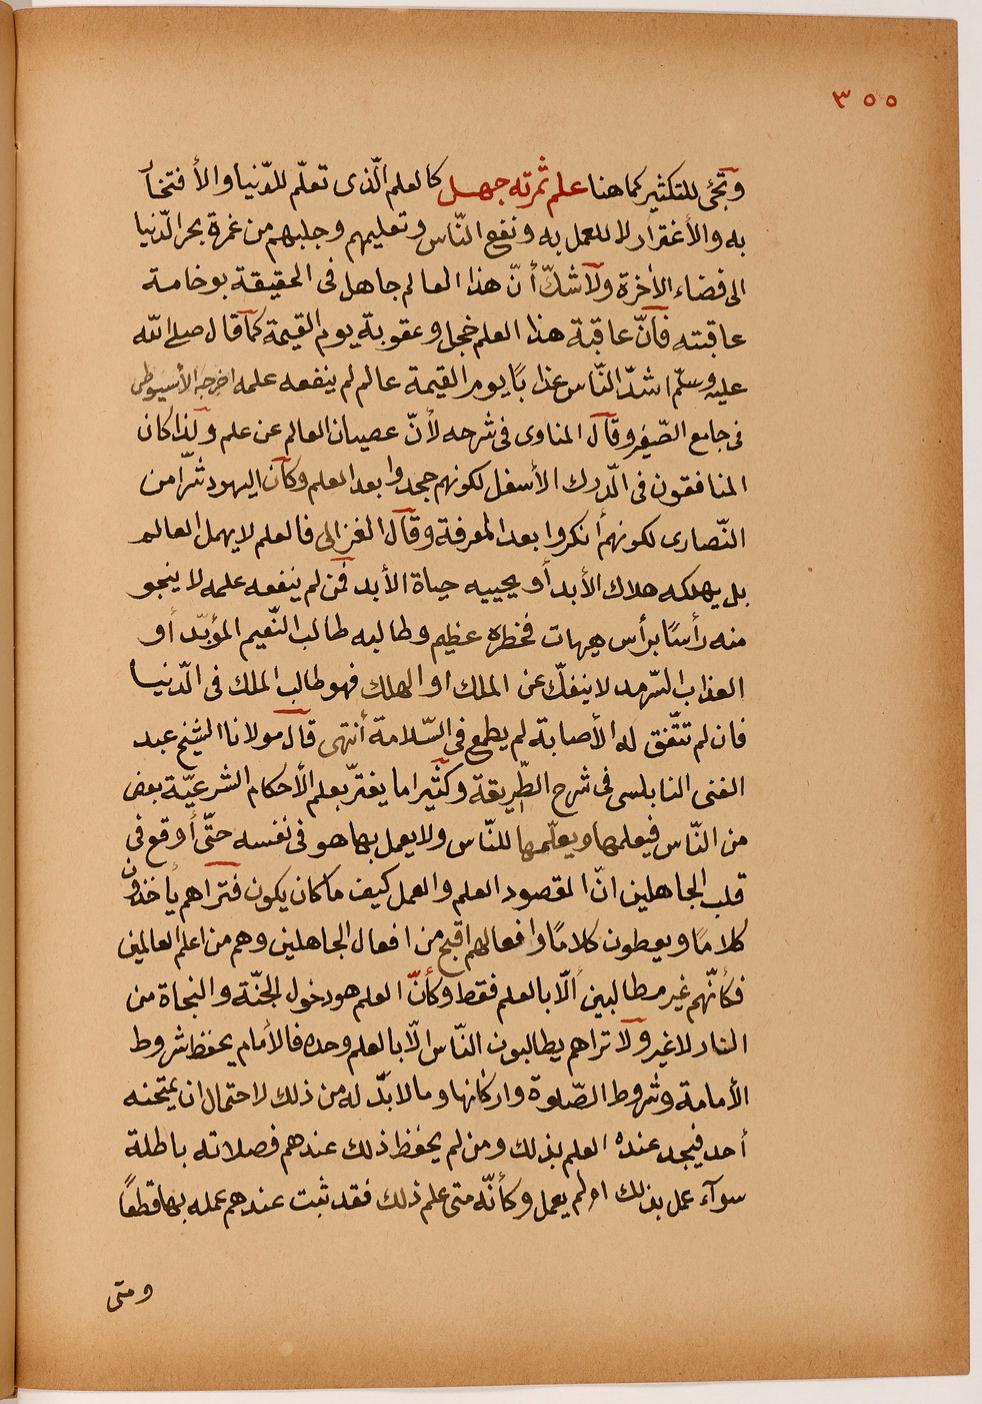 ٣٥٥
وتجئ للتكثير كما هنا علم ثمرته جهل كالعلم الّذى تعلّم للدّنيا والأفتخار
به والأغترار لا للعمل به ونفع النّاس وتعليمهم وجلبهم من غمرة بحر الدّنيا
الى فضاء الأخرة ولا شكّ أنّ هذا العالم جاهل فى الحقيقة بوخامة
عاقبته فانّ عاقبة هذا العلم خجل وعقوبة يوم القيمة كما قال صلى الله
عليه وسلّم اشدّ النّاس عذابًا يوم القيمة عالم لم ينفعه علمه اخرجه الأسيوطى
فى جامع الصّغير وقال المناوى فى شرحه لأنّ عصيان العالم عن علم ولذا كان
المنافقون فى الدّرك الأسفل لكونهم جحدوا بعد العلم وكان اليهود شرّا من
النّصارى لكونهم أنكروا بعد المعرفة وقال الغزالى فالعلم لا يهمل العالم
بل يهلكه هلاك الأبد أو يحييه حياة الأبد فمن لم ينفعه علمه لا ينجو
منه رأسًا برأس هيهات فخطره عظيم وطالبه طالب النّعيم المؤبّد أو
العذاب السّرمد لا ينفكّ عن الملك او الهلك فهو طالب الملك فى الدّنيا
فان لم تتّفق له الأصابة لم يطمع فى السّلامة أنتهى قال مولانا الشيخ عبد
الغنى النابلسى فى شرح الطّريقة وكثيرا ما يغترّ بعلم الأحكام الشرعيّة بعض
من النّاس فيعلمها ويعلّمها للنّاس ولا يعمل بها هو فى نفسه حتّى أوقع فى
قلب الجاهلين انّ المقصود العلم والعمل كيف ما كان يكون فتراهم يأخذون
كلامًا ويعطون كلامًا وافعالهم اقبح من افعال الجاهلين وهم من اعلم العالمين
فكأنّهم غير مطالبين ألّا بالعلم فقط وكأنّ العلم هو دخول الجنّة والنجاة من
النار لا غير ولا تراهم يطالبون النّاس الّا بالعلم وحده فالأمام يحفظ شروط
الأمامة وشروط الصّلوة واركانها وما لا بدّ له من ذلك لاحتمال ان يمتحنه
أحد فيجد عنده العلم بذلك ومن لم يحفظ ذلك عندهم فصلاته باطلة
سوآء عمل بذلك او لم يعمل وكأنّه متى علم ذلك فقد ثبت عندهم عمله بها قطعًا
ومتى